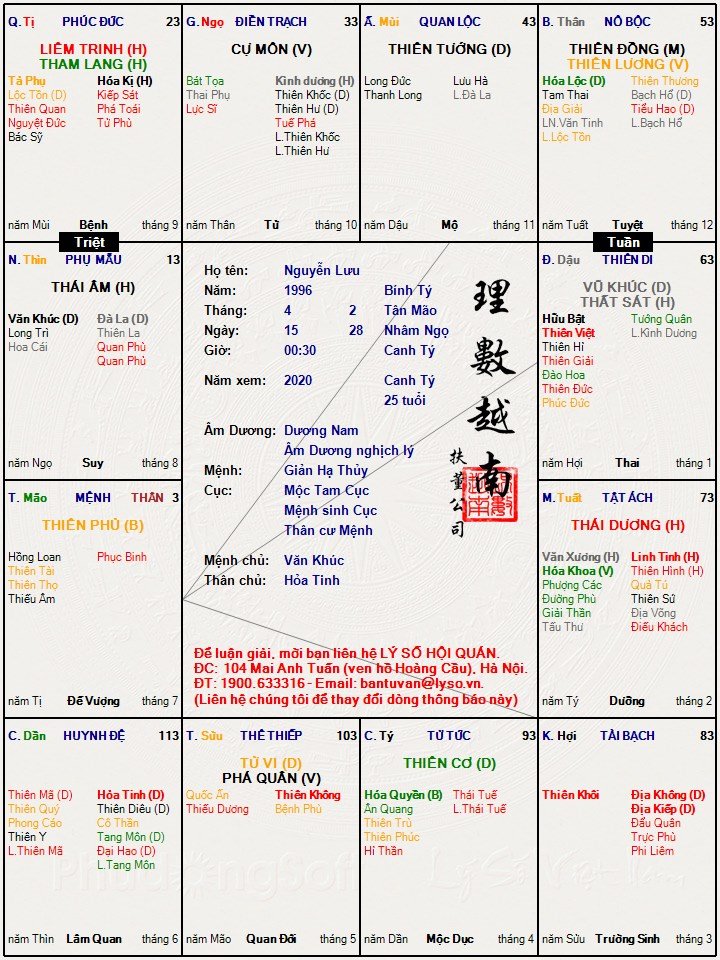 Q. Tị PHÚC ĐỨC 23
LIÊM TRINH (H)
THAM LANG (H)
Tả Phụ Hóa Kị (H)
Lộc Tồn (D) Kiếp Sát
Thiên Quan Phá Toái
Nguyệt Đức Tử Phù
Bác Sỹ
năm Mùi Bệnh tháng 9
G. Ngọ ĐIỀN TRẠCH 33
CỰ MÔN (V)
Bát Tọa Kình dương (H)
Thai Phụ Thiên Khốc (D)
Lực Sĩ Thiên Hư (D)
Tuế Phá
L.Thiên Khốc
L.Thiên Hư
năm Thân Tử tháng 10
Ấ. Mùi QUAN LỘC 43
THIÊN TƯỚNG (D)
Long Đức Lưu Hà
Thanh Long L.Đà La
năm Dậu Mộ tháng 11
B. Thân NÔ BỘC 53
THIÊN ĐỒNG (M)
THIÊN LƯƠNG (V)
Hóa Lộc (D) Thiên Thương
Tam Thai Bạch Hổ (D)
Địa Giải Tiểu Hao (D)
LN.Văn Tinh L.Bạch Hổ
L.Lộc Tồn
năm Tuất Tuyệt tháng 12
Triệt
Tuần
N. Thìn PHỤ MẪU 13
THÁI ÂM (H)
Văn Khúc (D) Đà La (D)
Long Trì Thiên La
Hoa Cái Quan Phủ
Quan Phù
năm Ngọ Suy tháng 8
Họ tên: Nguyễn Lưu
Năm: 1996 Bính Tý
Tháng: 4 2 Tân Mão
Ngày: 15 28 Nhâm Ngọ
Giờ: 00:30 Canh Tý
Năm xem: 2020 Canh Tý
25 tuổi
Âm Dương: Dương Nam
Âm Dương nghịch lý
Mệnh: Giản Hạ Thủy
Cục: Mộc Tam Cục
Mệnh sinh Cục
Thân cư Mệnh
Mệnh chủ: Văn Khúc
Thân chủ: Hỏa Tinh
理數越南
扶董公司
Để luận giải, mời bạn liên hệ LÝ SỐ HỘI QUÁN.
ĐC: 104 Mai Anh Tuấn (ven hồ Hoàng Cầu), Hà Nội.
ĐT: 1900.633316 - Email: bantuvan@lyso.vn.
(Liên hệ chúng tôi để thay đổi dòng thông báo này)
Đ. Dậu THIÊN DI 63
VŨ KHÚC (D)
THẤT SÁT (H)
Hữu Bật Tướng Quân
Thiên Việt L.Kình Dương
Thiên Hỉ
Thiên Giải
Đào Hoa
Thiên Đức
Phúc Đức
năm Hợi Thai tháng 1
T. Mão MỆNH THÂN 3
THIÊN PHỦ (B)
Hồng Loan Phục Binh
Thiên Tài
Thiên Thọ
Thiếu Âm
năm Tị Đế Vượng tháng 7
M. Tuất TẬT ÁCH 73
THÁI DƯƠNG (H)
Văn Xương (H) Linh Tinh (H)
Hóa Khoa (V) Thiên Hình (H)
Phượng Các Quả Tú
Đường Phù Thiên Sứ
Giải Thần Địa Võng
Tấu Thư Điếu Khách
năm Tý Dưỡng tháng 2
C. Dần HUYNH ĐỆ 113
Thiên Mã (D) Hỏa Tinh (D)
Thiên Quý Thiên Diêu (D)
Phong Cáo Cô Thần
Thiên Y Tang Môn (D)
L.Thiên Mã Đại Hao (D)
L.Tang Môn
năm Thìn Lâm Quan tháng 6
T. Sửu THÊ THIẾP 103
TỬ VI (D)
PHÁ QUÂN (V)
Quốc Ấn Thiên Không
Thiếu Dương Bệnh Phù
năm Mão Quan Đới tháng 5
C. Tý TỬ TỨC 93
THIÊN CƠ (D)
Hóa Quyền (B) Thái Tuế
Ân Quang L.Thái Tuế
Thiên Trù
Thiên Phúc
Hỉ Thần
năm Dần Mộc Dục tháng 4
K. Hợi TÀI BẠCH 83
Thiên Khôi Địa Không (D)
Địa Kiếp (D)
Đẩu Quân
Trực Phù
Phi Liêm
năm Sửu Trường Sinh tháng 3
PhuđổngSoft
Lý Số Việt Nam